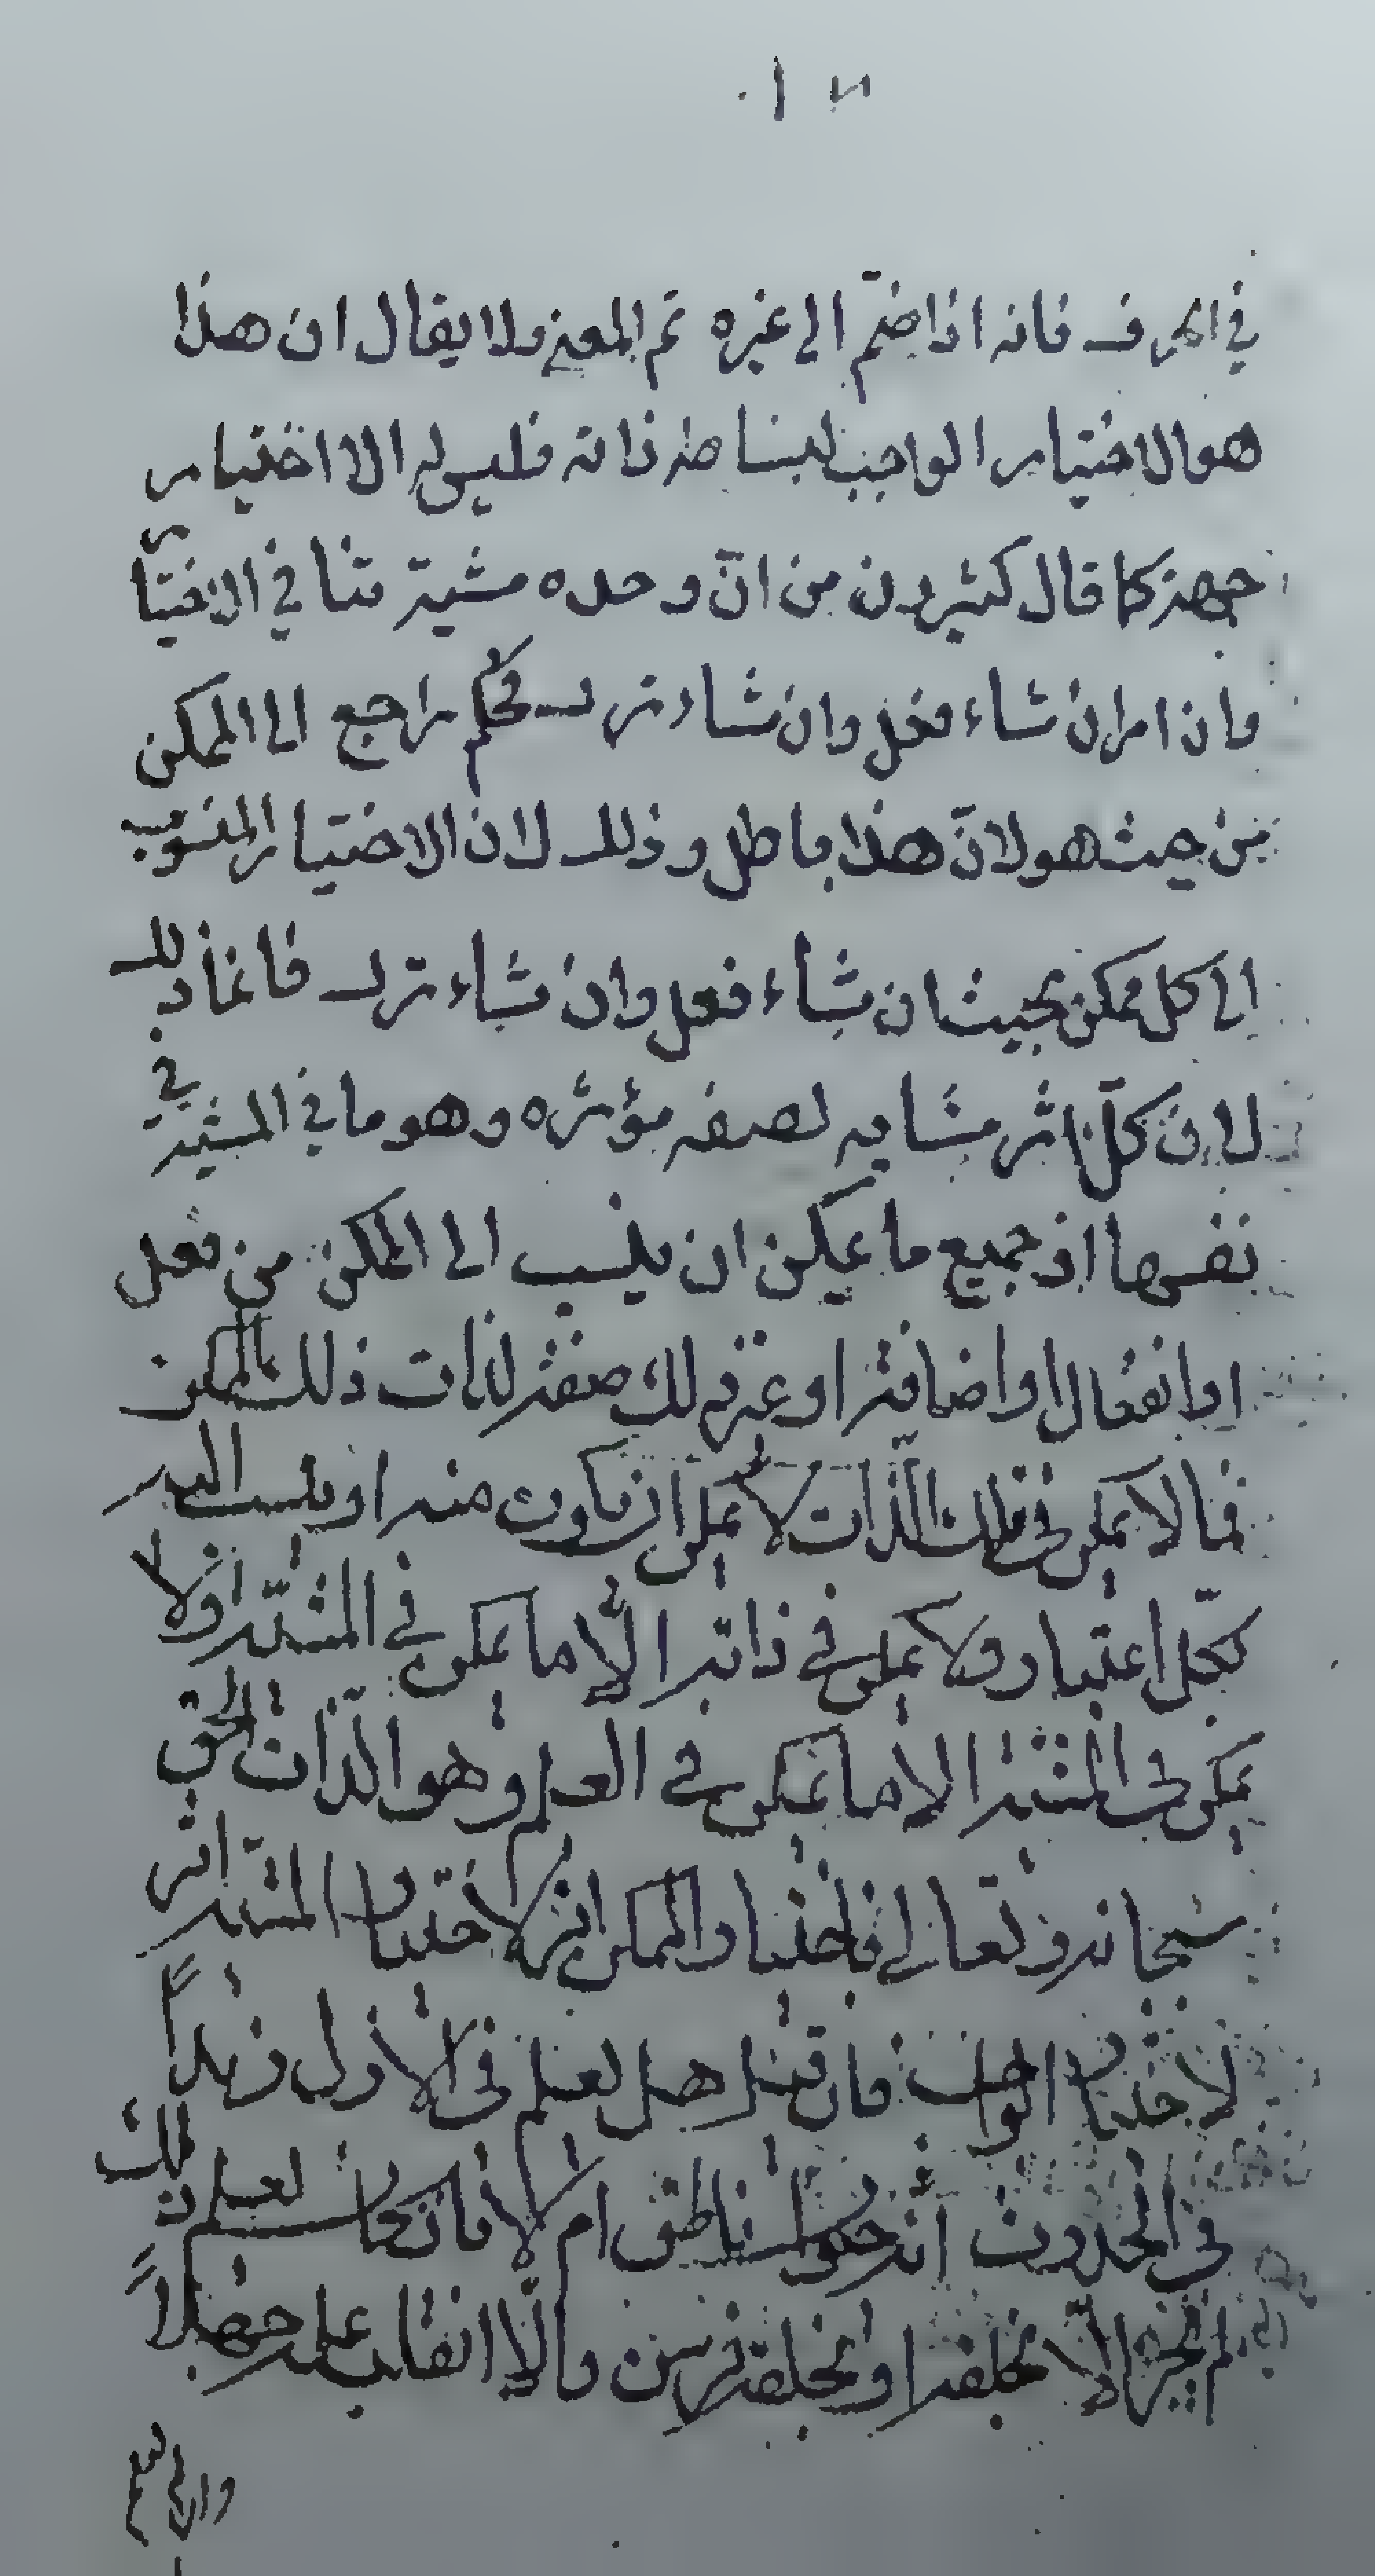 في الحرف فانه اذا ضمّ الى غيره تم المعنى ولا يقال ان هذا
هو الاختيار الواجب لبساطة ذاته فليس له الا اختيار
جهة كما قال كثيرون من انّ وحده مشية تنافي الاختيار
وان امر ان شاء فعل وان شاء ترك فحكم راجع الى الممكن
من حيث هو لانّ هذا باطل وذلك لان الاختيار المنسوب
الى كل ممكن بحيث ان شاء فعل وان شاء ترك فانما ذلك
لان كلّ اثر مشابه لصفة مؤثره وهو ما في المشية في
نفسها اذ جميع ما يمكن ان ينسب الى الممكن من فعل
او انفعال او اضافة او غير ذلك صفة لذات ذلك الممكن
فما لا يمكن في تلك الذّات لا يمكن ان يكون منه او ينسب اليه
بكل اعتبار ولا يمكن في ذاته الّا ما يمكن في المشيّة ولا
يمكن في المشية الا ما يمكن في العلم وهو الذّات الحق
سبحانه وتعالى فاختيار الممكن اثر لاختيار المشيّة اثر
لاختيار الواجب فان قيل هل تعلم في الاول زيداً
في الحدوث انه حيوان ناطق ام لا فان كان تعلم ذلك
لم يجز الّا تخلقه او تخلقه فرس والّا انقلب علمه جهلاً
وان لم